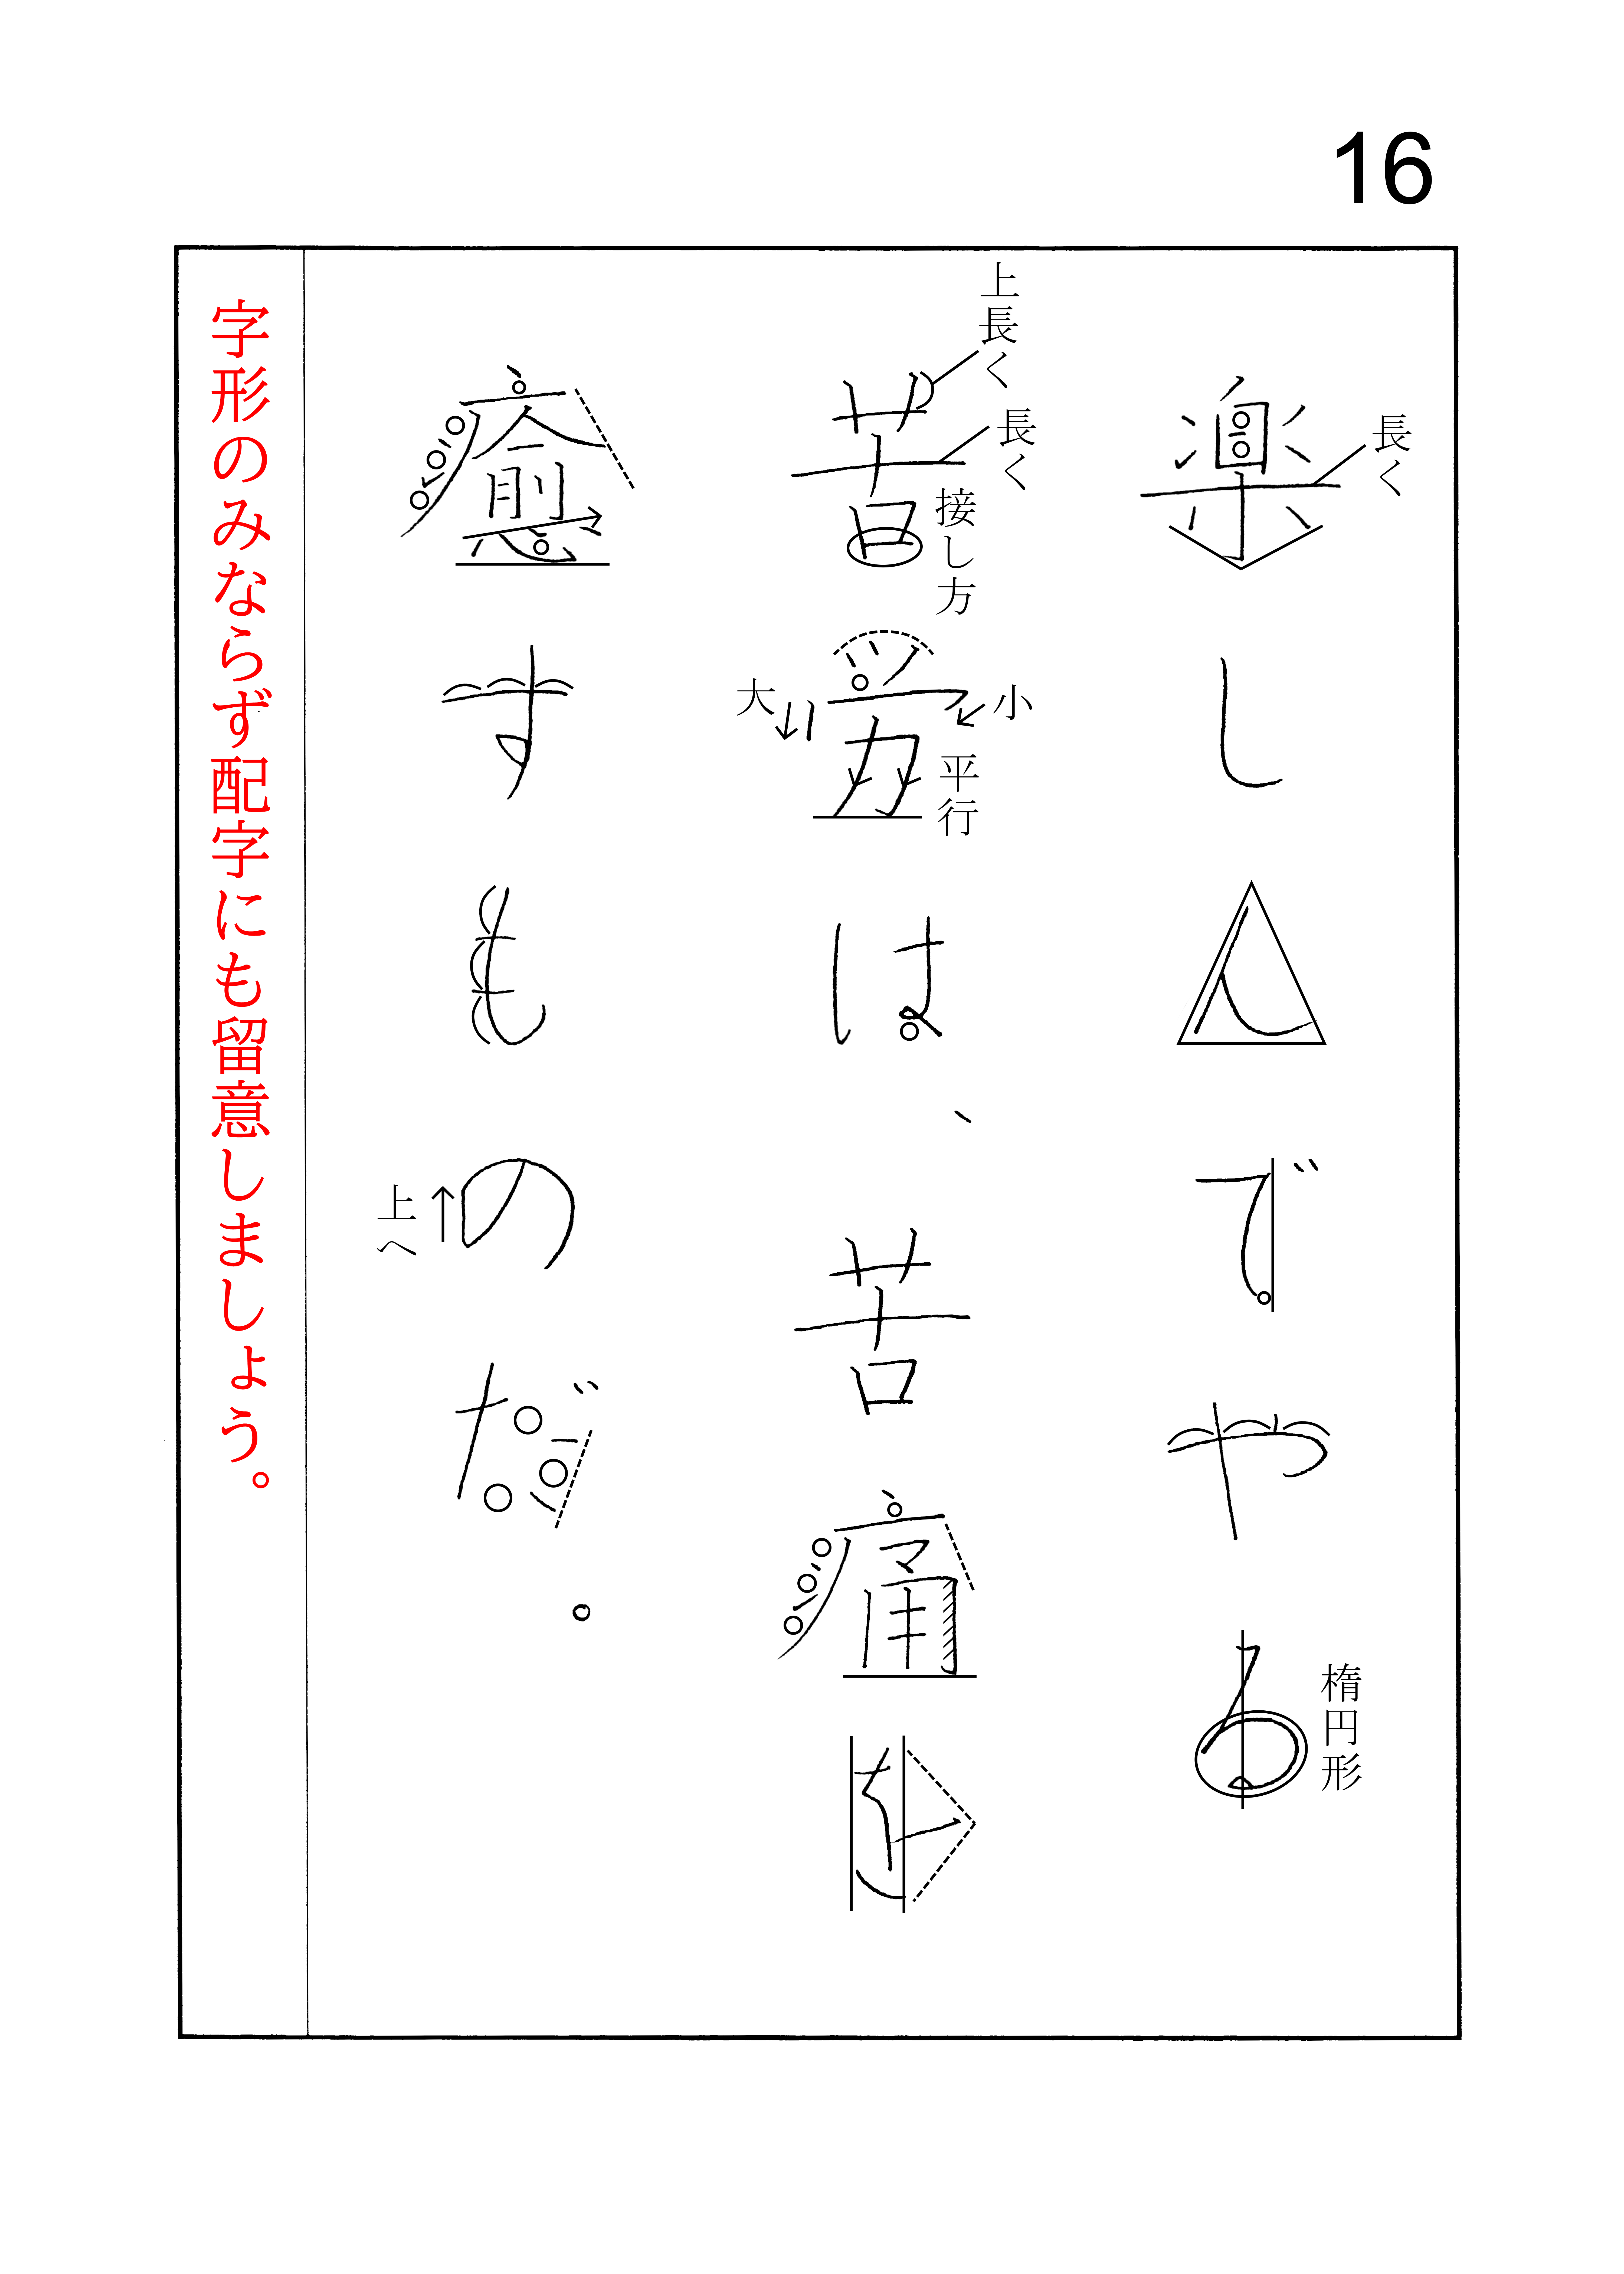 16
楽しんでやる
苦労は、苦痛を
癒すものだ。
長く
楕円形
上長く
長く
接し方
小
大
平行
上へ
字形のみならず配字にも留意しましょう。